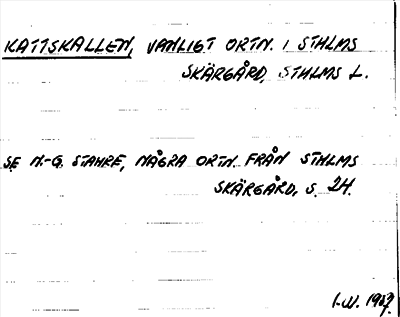 KATTSKALLEN, VANLIGT ORTN. I STHLMS
SKÄRGÅRD, STHLMS L.
SE N.-G. STAHRE, NÅGRA ORTN. FRÅN STHLMS
SKÄRGÅRD, S. 24.
I.W. 1987.